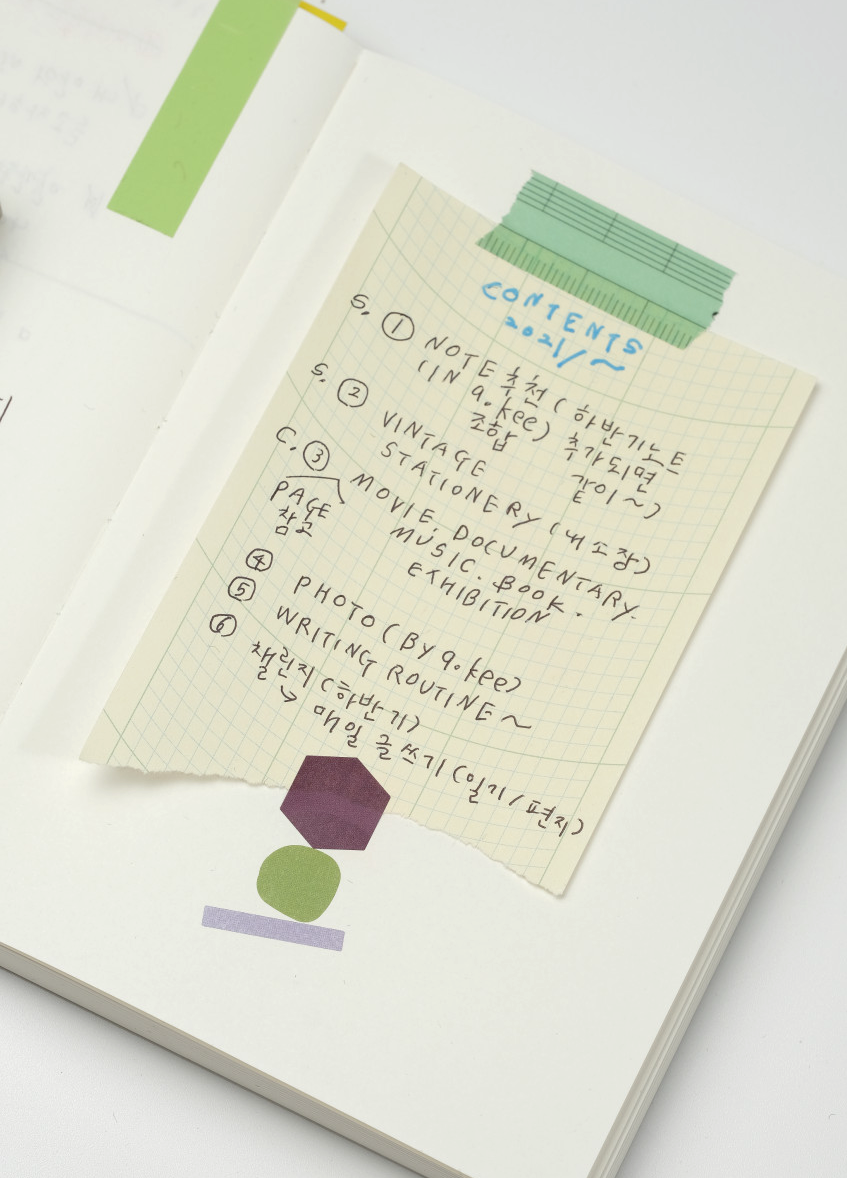 CONTENTS
2021/~
S. ① NOTE 추천 (하반기노트
(IN a.kee) 추가되면
조합 같이~)
S. ② VINTAGE
STATIONERY (내 소장)
C. ③ MOVIE. DOCUMENTARY.
PAGE MUSIC. BOOK.
참고 EXHIBITION
④ PHOTO (BY a.kee)
⑤ WRITING ROUTINE ~
⑥ 챌린지 (하반기)
↳ 매일 글쓰기 (일기/편지)